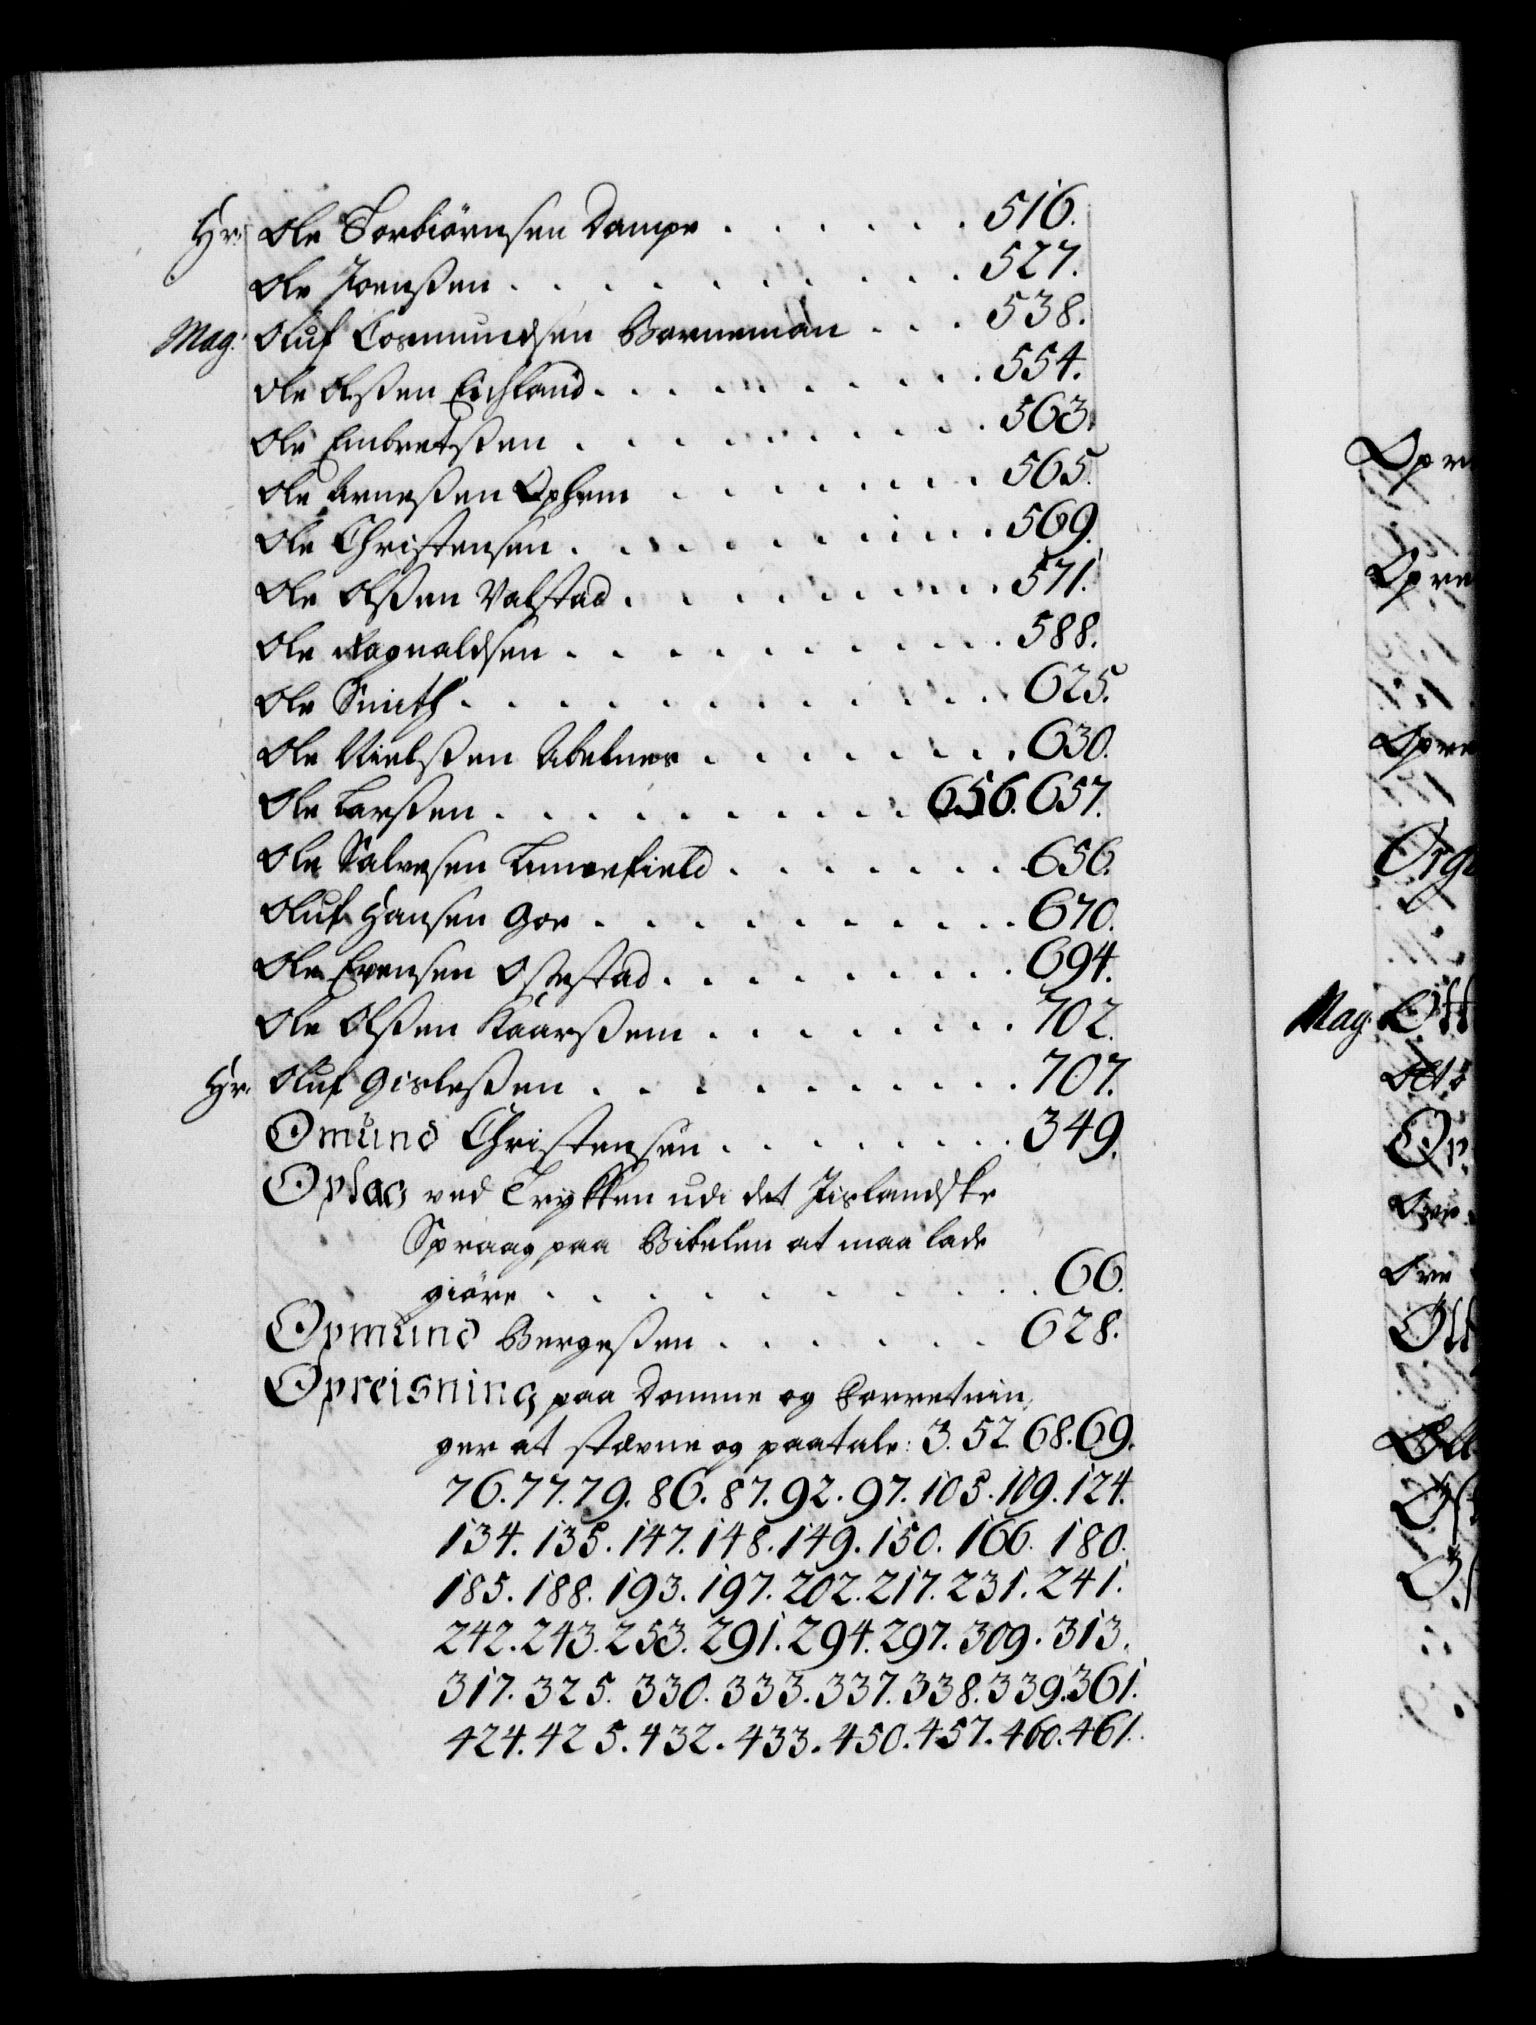 Hr: Ole Torbiörnsen Dampe . . . . . . 516.
Ole Joenssen . . . . . . . . . 527.
Mag: Oluf Cosmundsen Borneman . . . 538.
Ole Olssen Eichland . . . . . . . . 554.
Ole Embretssen . . . . . . . . . 563.
Ole Arnessen Ophem . . . . . . . 565.
Ole Christensen . . . . . . . . . 569.
Ole Olssen Valstad . . . . . . . . 571.
Ole Ragnaldsen . . . . . . . . . 588.
Ole Smith . . . . . . . . . . . 625.
Ole Nielssen Abelnes . . . . . . . 630.
Ole Larssen . . . . . . . . . 656. 657.
Ole Salvesen . . . . . . . 656.
Oluf Hansen Goe . . . . . . . . . 670.
Ole Evensen Ostestad . . . . . . . . 694.
Ole Olssen Kaarssem . . . . . . . 702.
Hr: Oluf Gislessen . . . . . . . . . 707.
Omund Christensen . . . . . . . . 349.
Oplag ved Trykken udi det Jislandske
Spraag paa Bibelen at maa lade
giöre . . . . . . . . . . 66.
Opmund Bergessen . . . . . . 628.
Opreisning paa Domme og Forretnin,
ger at stævne og paatale: 3. 52. 68. 69.
76. 77. 79. 86. 87. 92. 97. 105. 109. 124.
134. 135. 147. 148. 149. 150. 166. 180.
185. 188. 193. 197. 202. 217. 231. 241.
242. 243. 253. 291. 294. 297. 309. 313.
317. 325. 330. 333. 337. 338. 339. 361.
424. 425. 432. 433. 450. 457. 460. 461.